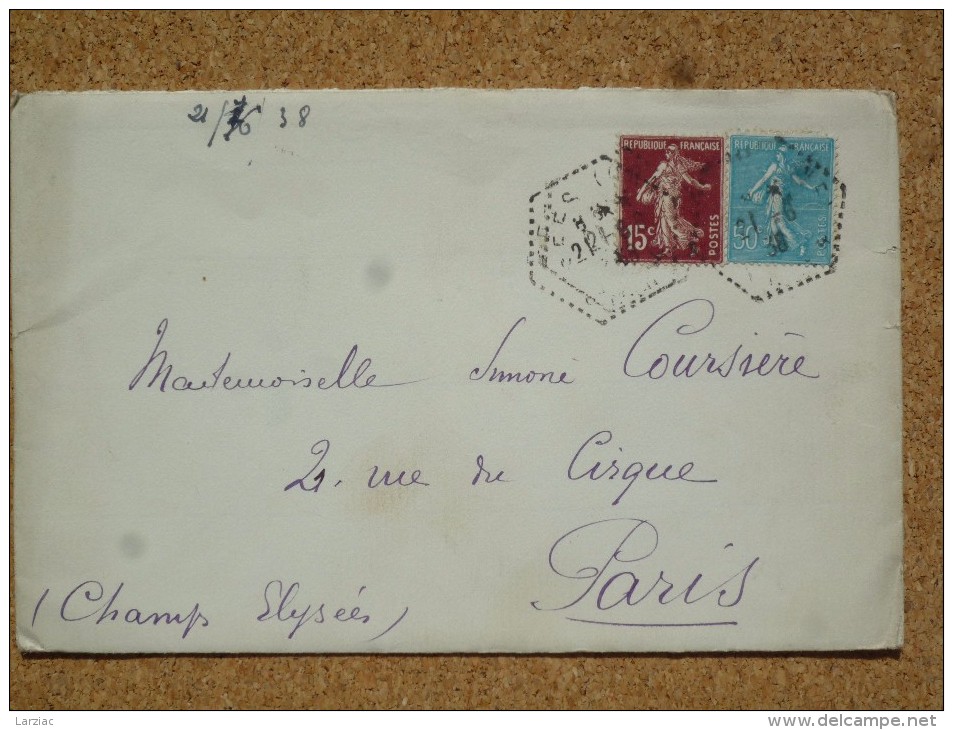 21/6 38
REPUBLIQUE FRANÇAISE
15c
POSTES
REPUBLIQUE FRANÇAISE
50c
POSTES
21-6
38
Mademoiselle Simone Coursière
21. rue du Cirque
Paris
(Champs Elysées)
Larziac
http://www.delcampe.net